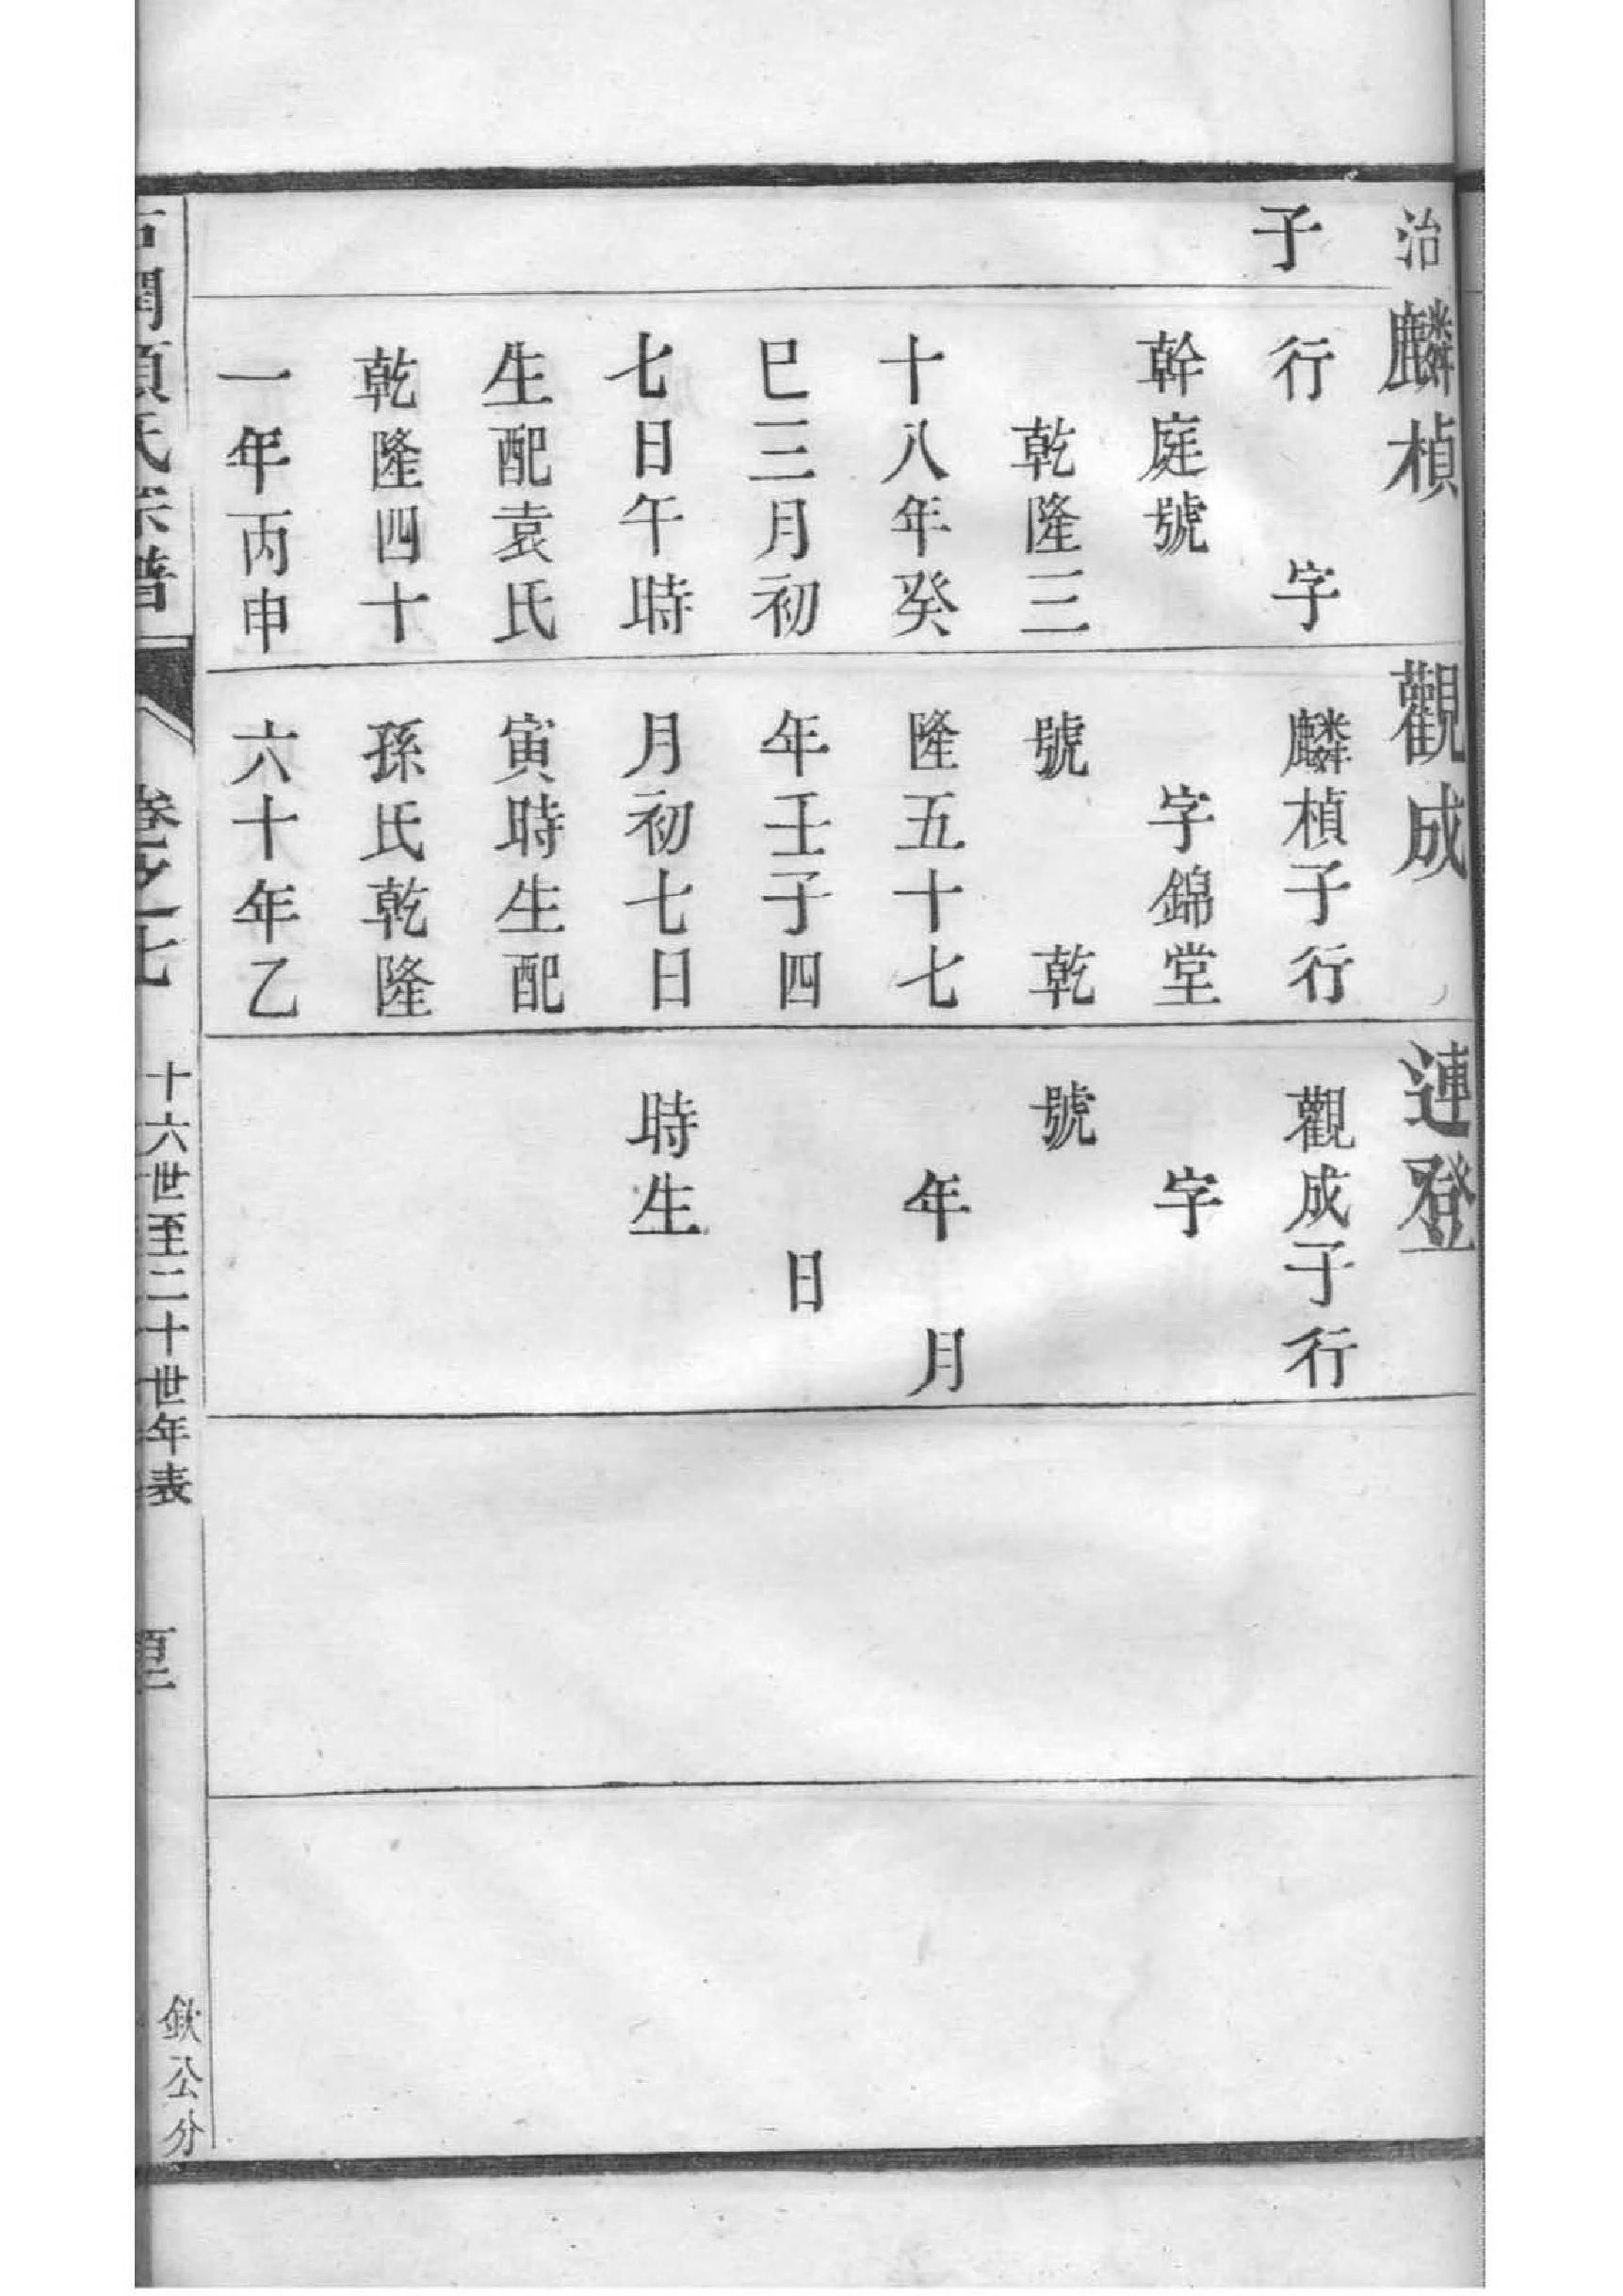 治
子
麟楨
行字
幹庭號
乾隆三
十八年癸
巳三月初
七日午時
生配袁氏
乾隆四十
一年丙申
觀成
麟楨子行
字錦堂
號乾
隆五十七
年壬子四
月初七日
寅時生配
孫氏乾隆
六十年乙
連登
觀成子行
字
號
年月
日
時生
氏宗譜
卷之七
十六世至二十世年表
欽公分